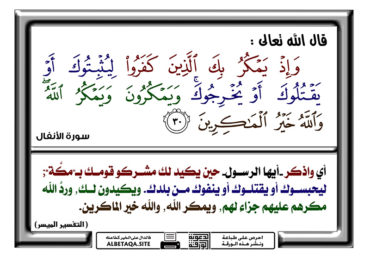 قال الله تعالى :
وَإِذْ يَمْكُرُ بِكَ ٱلَّذِينَ كَفَرُوا۟ لِيُثْبِتُوكَ أَوْ
يَقْتُلُوكَ أَوْ يُخْرِجُوكَ ۚ وَيَمْكُرُونَ وَيَمْكُرُ ٱللَّهُ ۖ
وَٱللَّهُ خَيْرُ ٱلْمَـٰكِرِينَ ﴿٣٠﴾
سورة الأنفال
أي واذكر -أيها الرسول- حين يكيد لك مشركو قومك بـ"مكَّة"؛
ليحبسوك أو يقتلوك أو ينفوك من بلدك. ويكيدون لك، وردَّ الله
مكرهم عليهم جزاء لهم، ويمكر الله، والله خير الماكرين.
( التفسير الميسر )
احرص على طباعة
ونشر هذه الورقة
الدال على الخير كفاعله
ALBETAQA.SITE